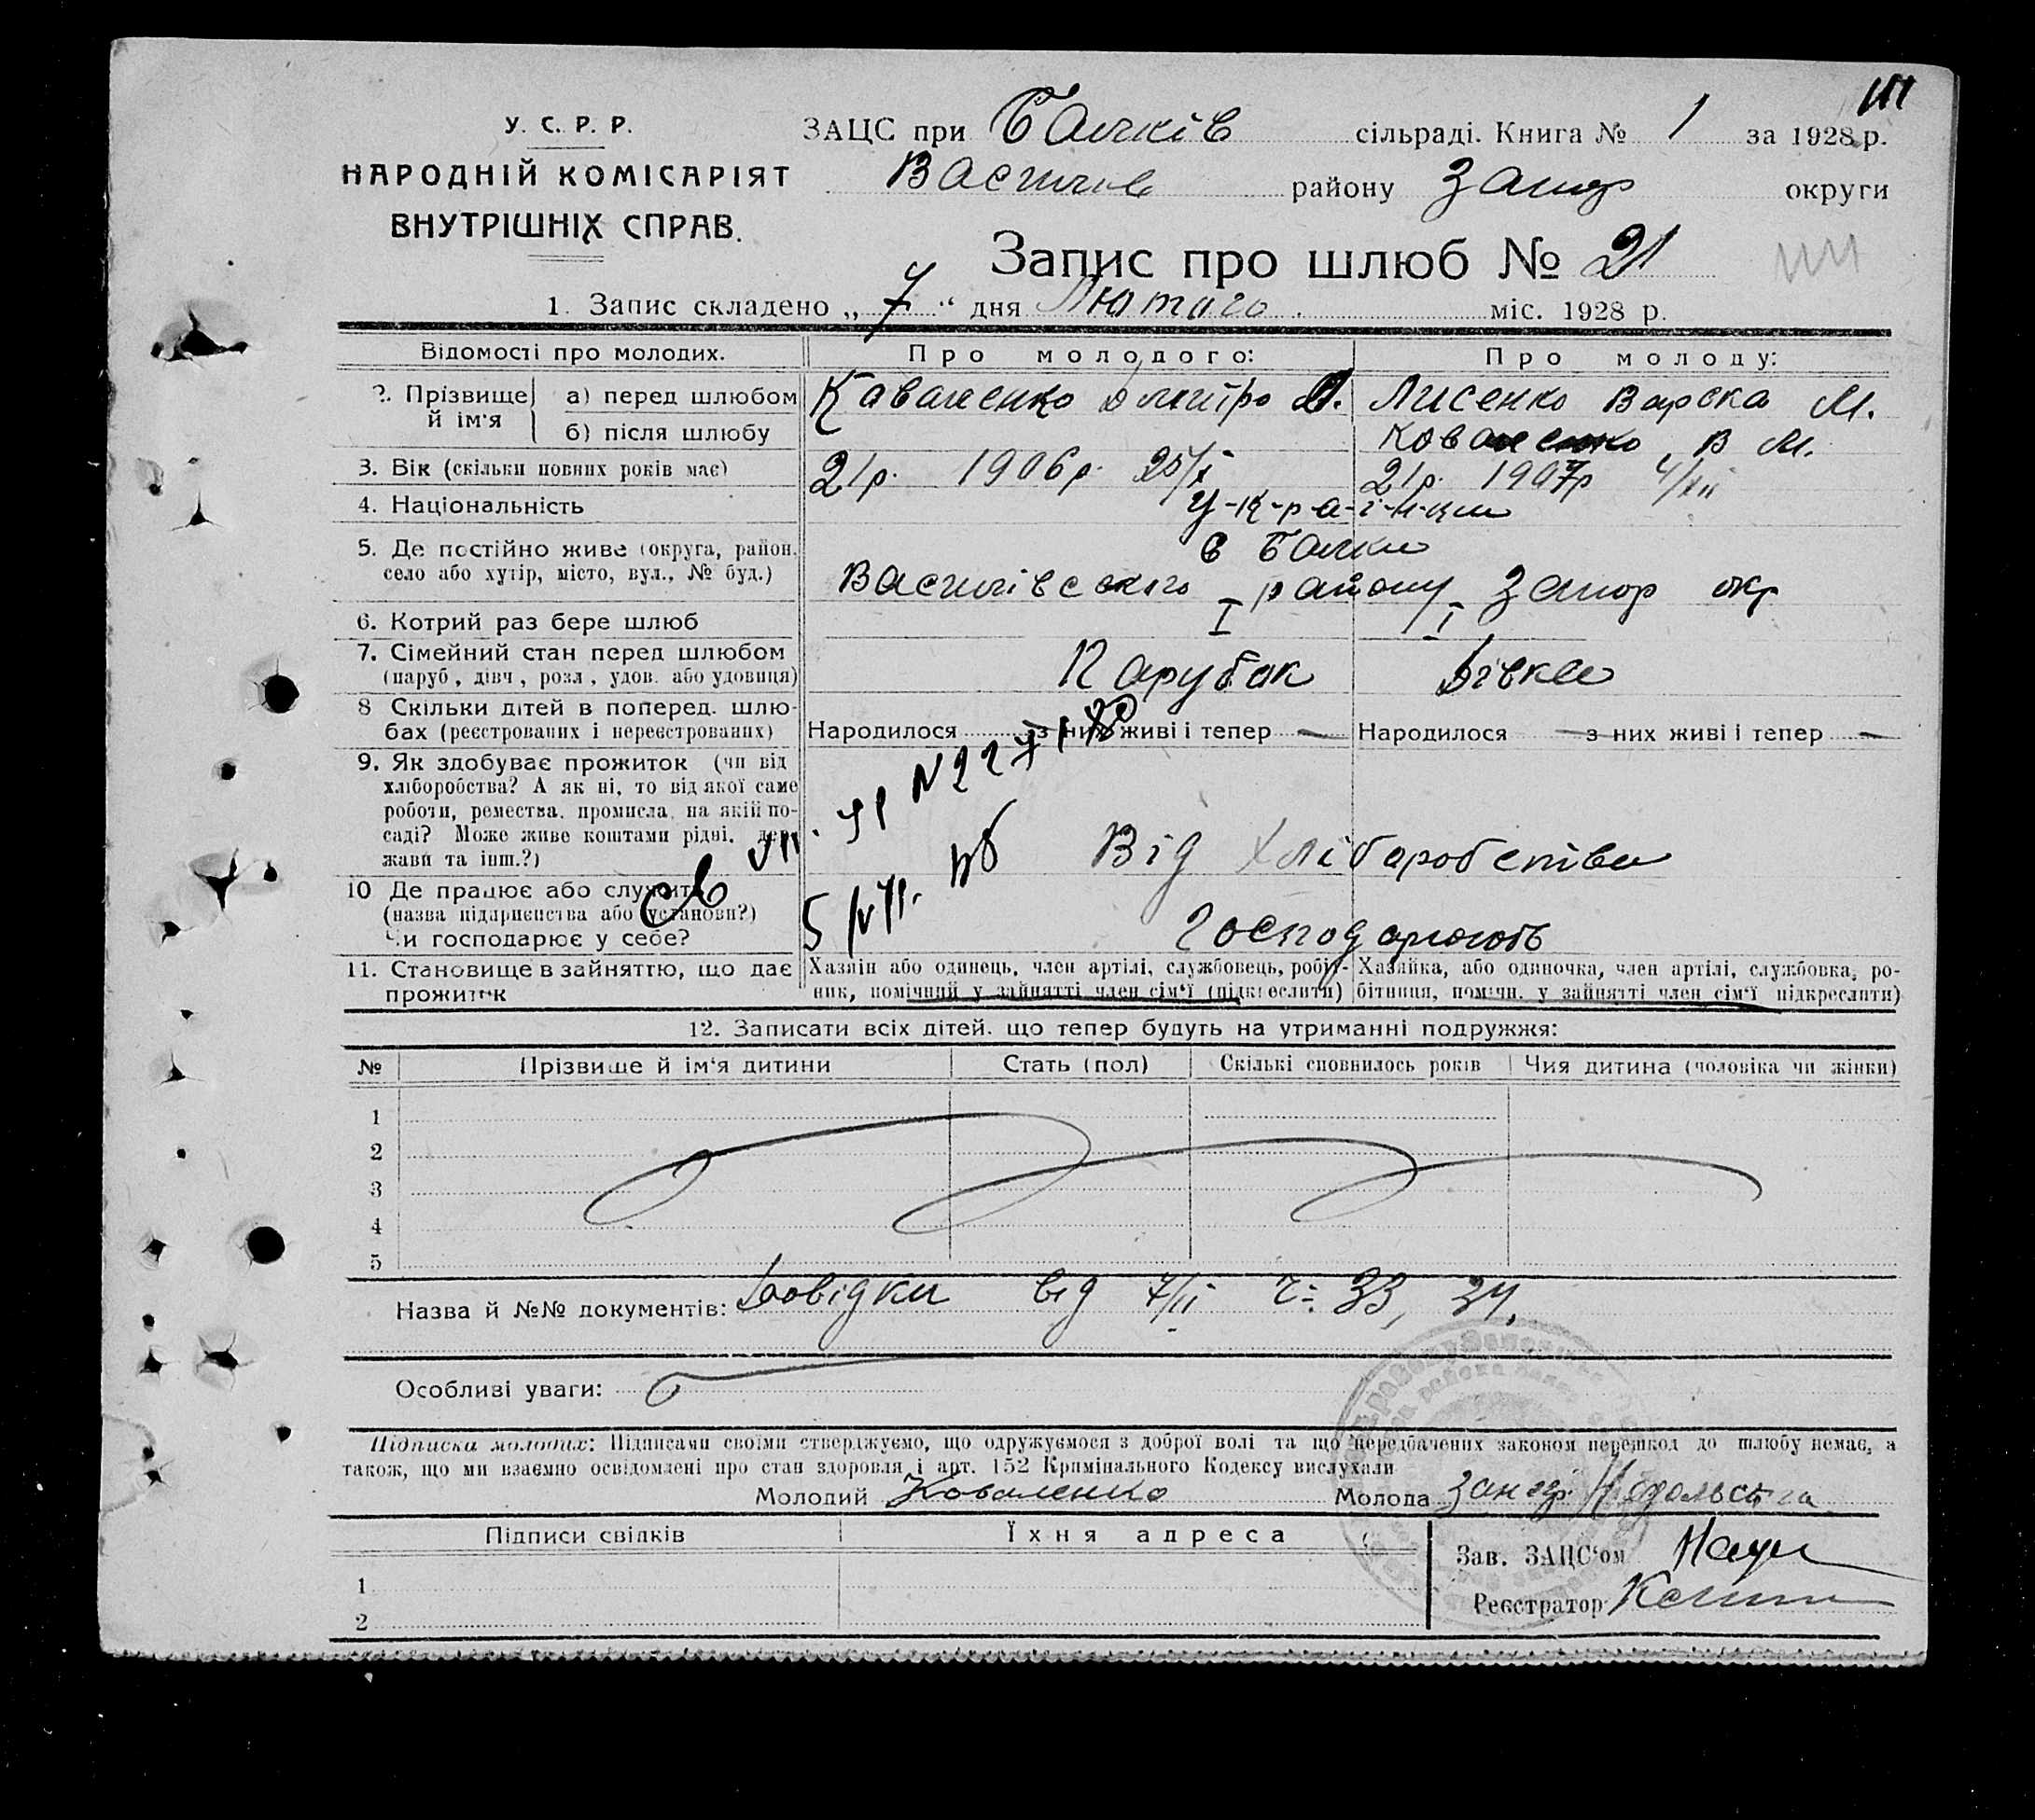 У. С. Р. Р.
НАРОДНІЙ КОМІСАРІЯТ
ВНУТРІШНІХ СПРАВ.
ЗАЦС при Балків сільраді. Книга № 1 за 1928 р.
Василів району Запор округи
Запис про шлюб № 21
1. Запис складено „ 7 “ дня Лютого міс. 1928 р.
Відомості про молодих. Про молодого: Про молоду:
2. Прізвище й ім'я а) перед шлюбом Коваленко Дмитро Лисенко Варска М.
б) після шлюбу Коваленко В М.
3. Вік (скільки повних років має) 21р. 1906р. 21р. 1907р 4/XII
4. Національність У-к-р-а-ї-н-ци
5. Де постійно живе (округа, район, с Балки
село або хутір, місто, вул., № буд.) Василівського району Запор окр
6. Котрий раз бере шлюб I I
7. Сімейний стан перед шлюбом Парубок Дівка
(паруб, дівч, розл, удов. або удовиця)
8 Скільки дітей в поперед. шлю-
бах (реєстрованих і нереєстрованих) Народилося з них живі і тепер — Народилося — з них живі і тепер —
9. Як здобуває прожиток (чи від
хліборобства? А як ні, то від якої саме
роботи, ремества, промисла, на якій по-
саді? Може живе коштами рідні, дер-
жави та інш.?) Від хліборобства
10 Де працює або служить
(назва підприємства або установи?)
Чи господарює у себе? Господарюють
11. Становище в зайняттю, що дає Хазяїн або одинець, член артілі, службовець, робіт- Хазяйка, або одиночка, член артілі, службовка, ро-
прожиток ник, помічний у зайнятті член сім'ї (підкреслити) бітниця, помічн. у зайнятті член сім'ї підкреслити)
12. Записати всіх дітей, що тепер будуть на утриманні подружжя:
№ Прізвище й ім'я дитини Стать (пол) Скількі сповнилось років Чия дитина (чоловіка чи жінки)
1
2
3
4
5
Назва й №№ документів: Довідки від 7/II ч: 33, 34,
Особливі уваги:
Підписка молодих: Підписами своїми стверджуємо, що одружуємося з доброї волі та що передбачених законом перешкод до шлюбу немає, а
також, що ми взаємно освідомлені про стан здоровля і арт. 152 Кримінального Кодексу вислухали
Молодий Коваленко Молода
Підписи свідків Їхня адреса
Зав. ЗАЦС'ом
1
Реєстратор
2